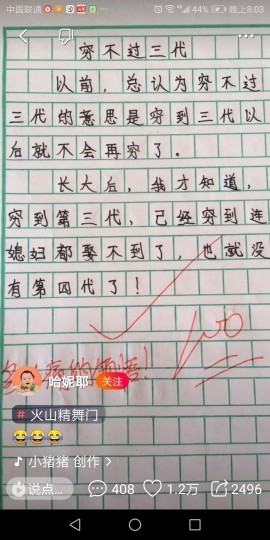 中国联通
44% 晚上8:03
穷不过三代
以前，总认为穷不过
三代的意思是穷到三代以
后就不会再穷了。
长大后，我才知道，
穷到第三代，己经穷到连
媳妇都娶不到了，也就没
有第四代了！
100
的领悟！
哈妮耶
关注
# 火山精舞门
小猪猪 创作 >
说点...
408
1.2万
2496